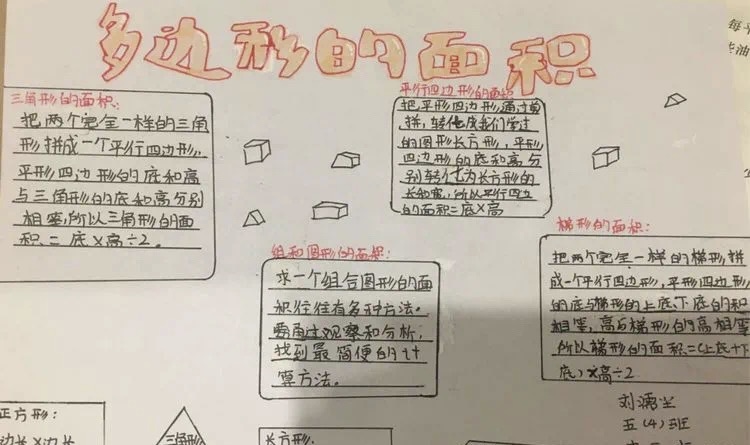 多边形的面积
三角形的面积:
把两个完全一样的三角
形拼成一个平行四边形,
平形四边形的底和高
与三角形的底和高分别
相等,所以三角形的面
积=底×高÷2。
平行四边形的面积
把平形四边形,通过剪
拼,转化成我们学过
的图形长方形,平形
四边形的底和高分
别转化为长方形的
长和宽,所以平行四边
的面积=底×高
组和图形的面积:
求一个组合图形的面
积往往有多种方法。
要通过观察和分析,
找到最简便的计
算方法。
梯形的面积:
把两个完全一样的梯形拼
成一个平行四边形,平形四边形
的底与梯形的上底、下底的和
相等,高与梯形的高相等
所以梯形的面积=(上底+下
底)×高÷2
五(4)班
正方形:
边长×边长
三角形
长方形:
每平
柴油